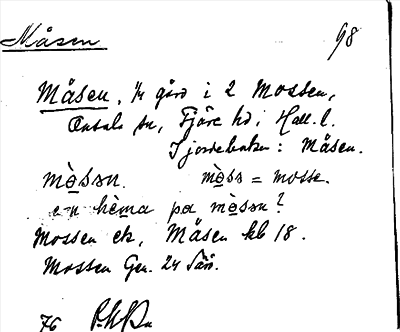 Måsen 98
Måsen, 1/4 gård i 2 Mossen,
Onsala sn, Fjäre hd, Hall. l.
I jordeboken: Måsen.
mòsən. mòss = mosse.
hèma pa mòsən?
Mossen ek, Måsen kb 18.
Mossen Gen.
76